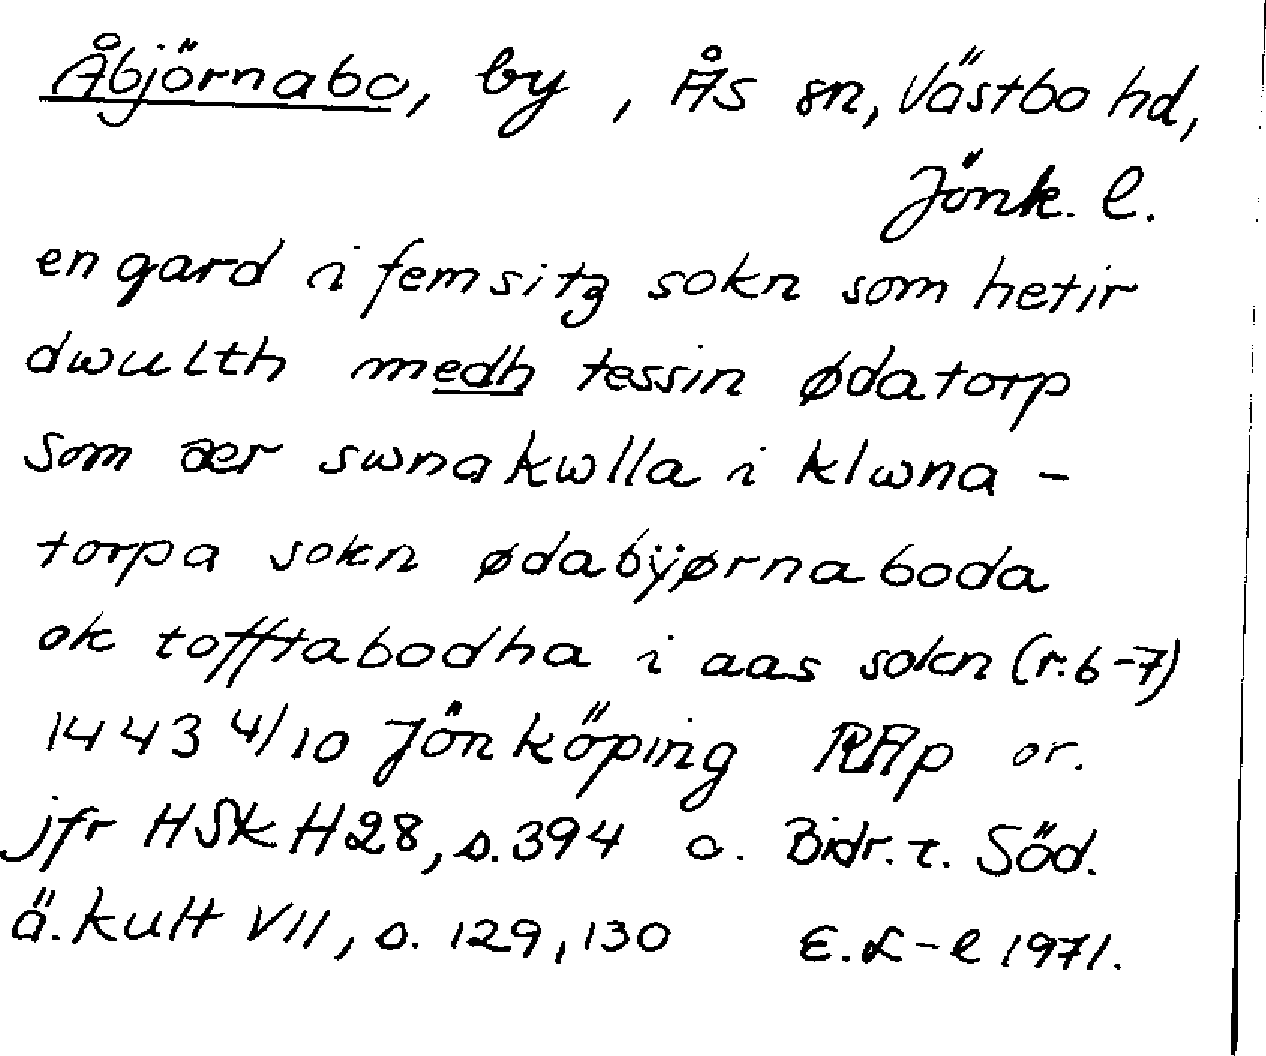 Åbjörnabo, by, Ås sn, Västbo hd,
Jönk. l.
en gard i femsitz sokn som hetir
dwulth medh tessin ødatorp
som ær swnakwlla i klwna-
torpa sokn ødabÿørnaboda
ok tofftabodha i aas sokn (r. 6-7)
1443 4/10 Jönköping RAp or.
jfr HSkH28, s. 394 o. Bidr. t. Söd.
ä. kult VII, s. 129, 130 E. L-l 1971.